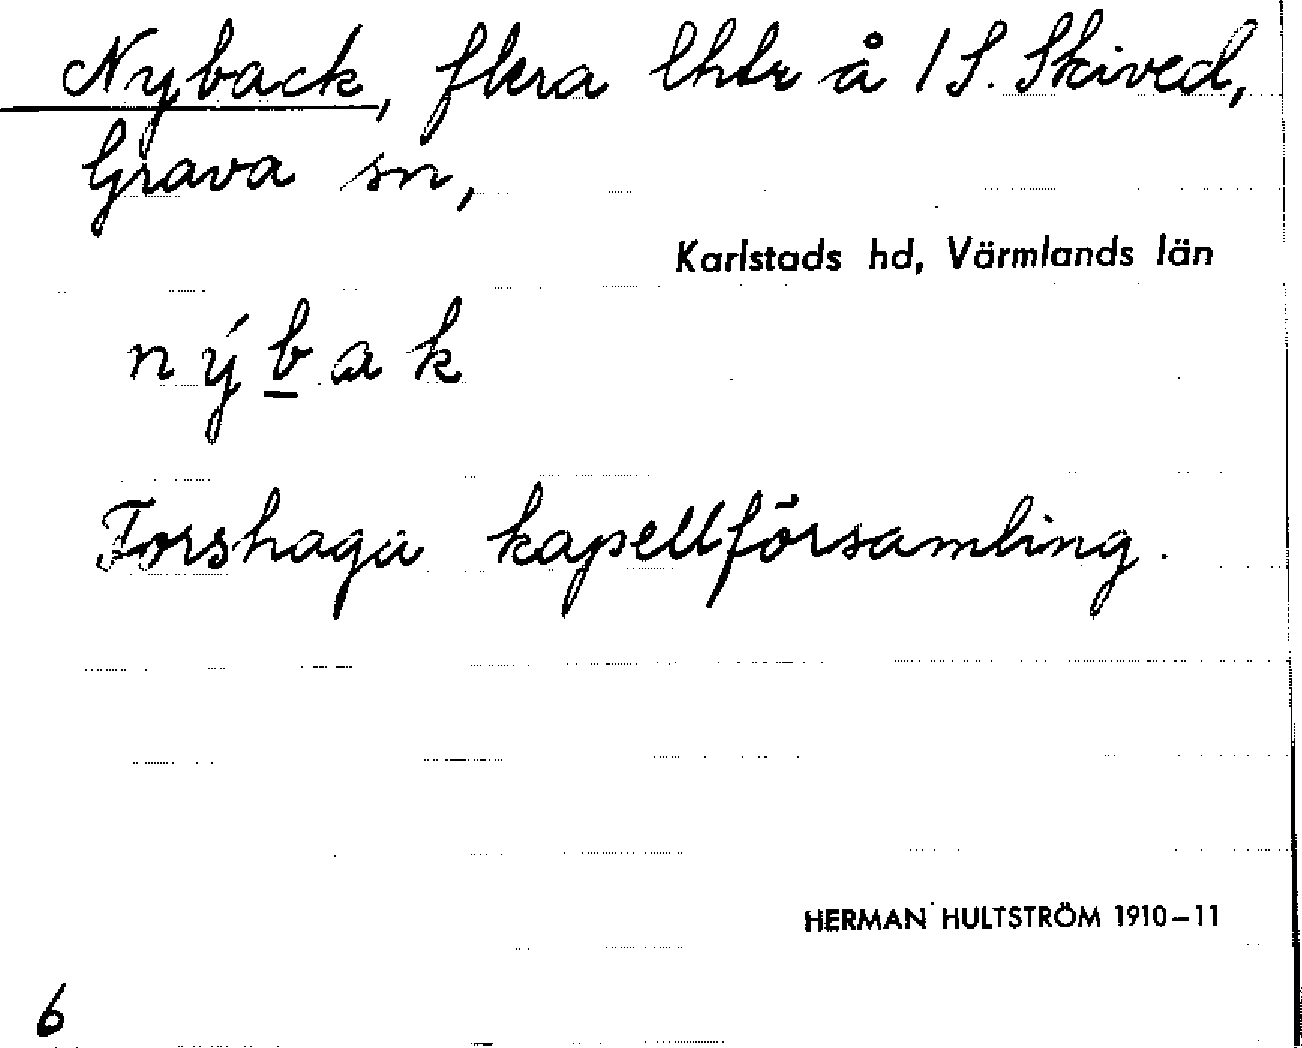 Nyback, flera lhtr å 1 S. Skived,
Grava sn,
Karlstads hd, Värmlands län
n ý b a k
Forshaga kapellförsamling.
HERMAN HULTSTRÖM 1910–11
6